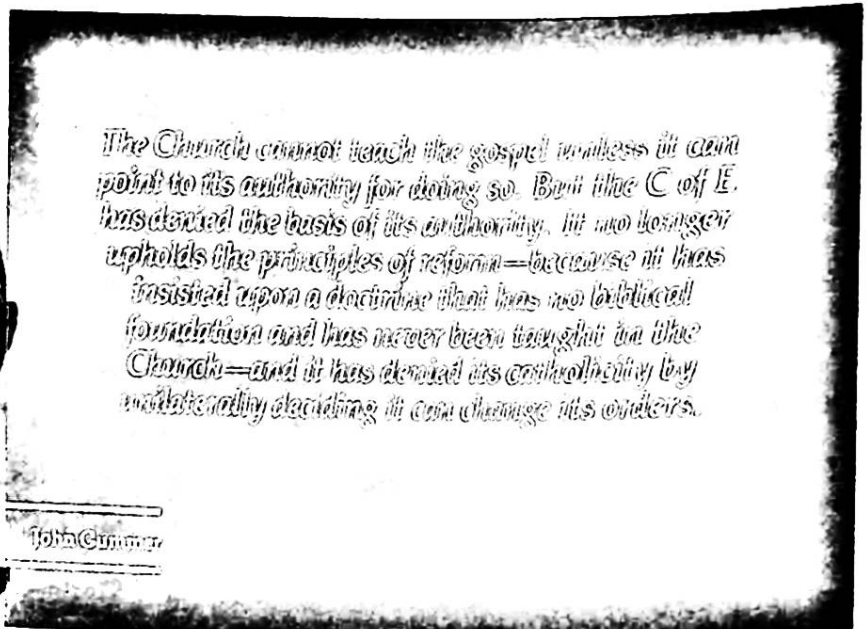 The Church cannot teach the gospel unless it can
point to its authority for doing so. But the C of E.
has denied the basis of its authority. It no longer
upholds the principles of reform—because it has
insisted upon a doctrine that has no biblical
foundation and has never been taught in the
Church—and it has denied its catholicity by
unilaterally deciding it can change its orders.
John